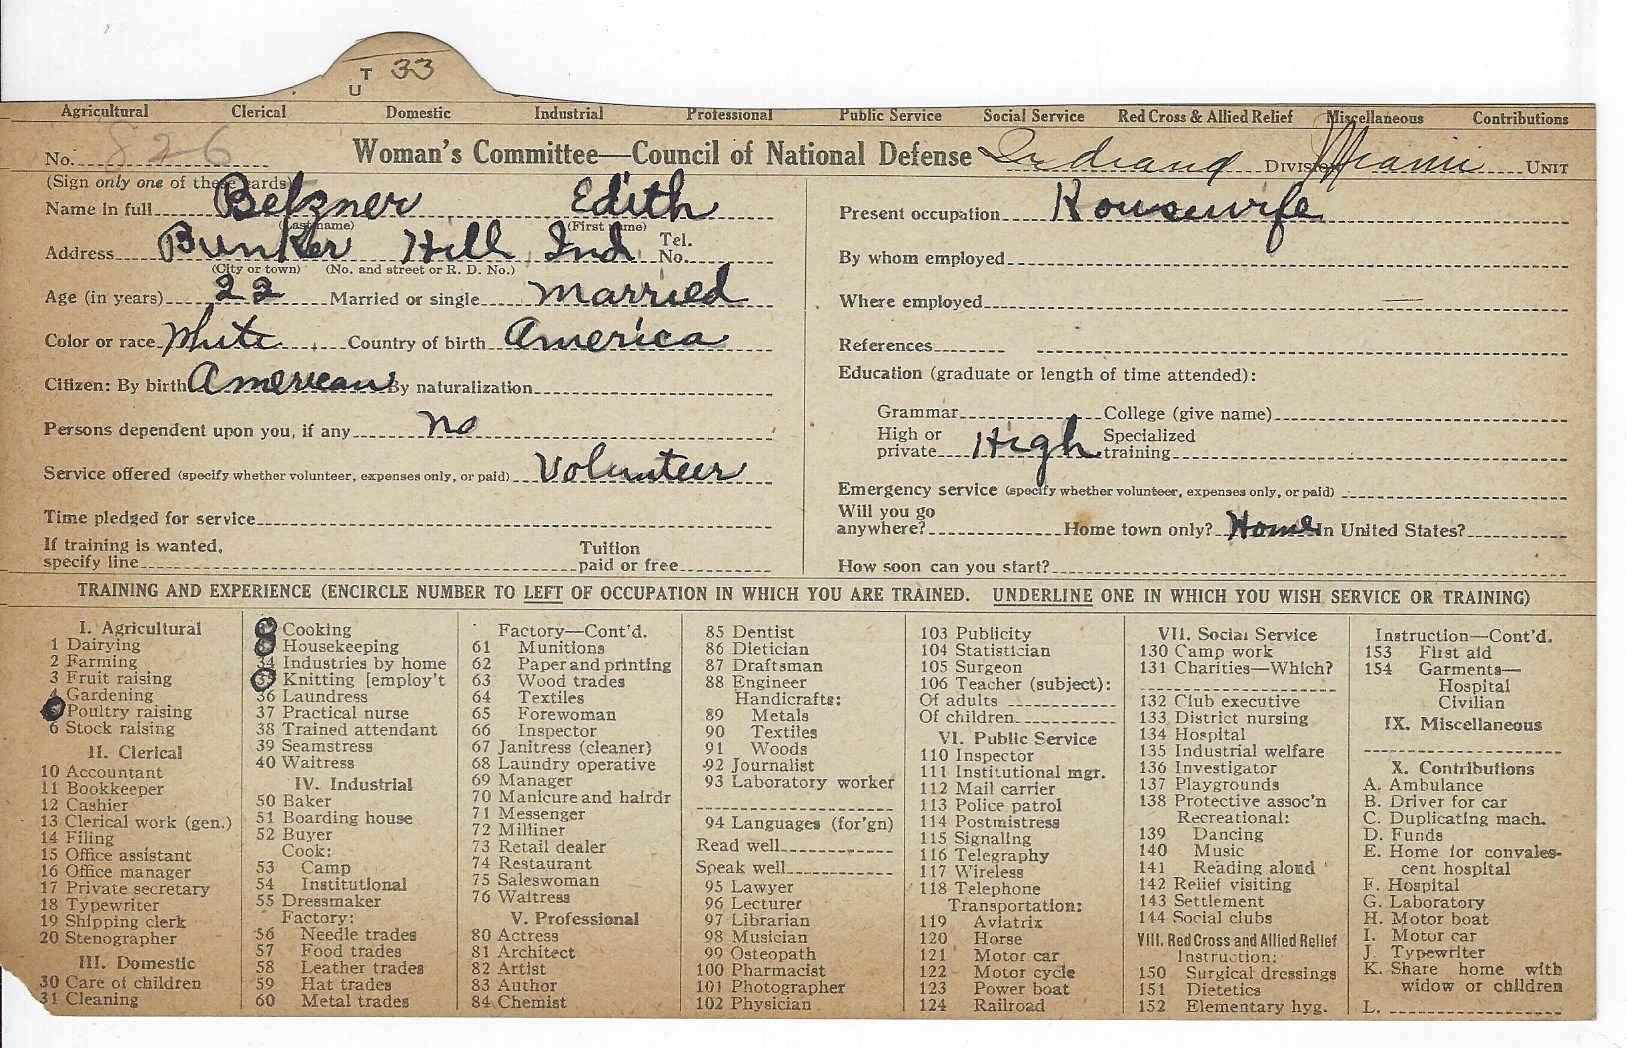 T 33
U
Agricultural Clerical Domestic Industrial Professional Public Service Social Service Red Cross & Allied Relief Miscellaneous Contributions
No. 826 Woman's Committee—Council of National Defense Indiana Division Miami Unit
(Sign only one of these cards)
Name in full Betzner Edith
(Last name) (First name)
Address Bunker Hill Ind Tel. No.
(City or town) (No. and street or R. D. No.)
Age (in years) 22 Married or single Married
Color or race White Country of birth America
Citizen: By birth American By naturalization
Persons dependent upon you, if any no
Service offered (specify whether volunteer, expenses only, or paid) Volunteer
Time pledged for service
If training is wanted, specify line Tuition paid or free
Present occupation Housewife
By whom employed
Where employed
References
Education (graduate or length of time attended):
Grammar College (give name)
High or private High Specialized training
Emergency service (specify whether volunteer, expenses only, or paid)
Will you go anywhere? Home town only? Home In United States?
How soon can you start?
TRAINING AND EXPERIENCE (ENCIRCLE NUMBER TO LEFT OF OCCUPATION IN WHICH YOU ARE TRAINED. UNDERLINE ONE IN WHICH YOU WISH SERVICE OR TRAINING)
I. Agricultural
1 Dairying
2 Farming
3 Fruit raising
4 Gardening
Poultry raising
6 Stock raising
II. Clerical
10 Accountant
11 Bookkeeper
12 Cashier
13 Clerical work (gen.)
14 Filing
15 Office assistant
16 Office manager
17 Private secretary
18 Typewriter
19 Shipping clerk
20 Stenographer
III. Domestic
30 Care of children
31 Cleaning
Cooking
Housekeeping
34 Industries by home
35 Knitting [employ't
36 Laundress
37 Practical nurse
38 Trained attendant
39 Seamstress
40 Waitress
IV. Industrial
50 Baker
51 Boarding house
52 Buyer
Cook:
53 Camp
54 Institutional
55 Dressmaker
Factory:
56 Needle trades
57 Food trades
58 Leather trades
59 Hat trades
60 Metal trades
Factory—Cont'd.
61 Munitions
62 Paper and printing
63 Wood trades
64 Textiles
65 Forewoman
66 Inspector
67 Janitress (cleaner)
68 Laundry operative
69 Manager
70 Manicure and hairdr
71 Messenger
72 Milliner
73 Retail dealer
74 Restaurant
75 Saleswoman
76 Waitress
V. Professional
80 Actress
81 Architect
82 Artist
83 Author
84 Chemist
85 Dentist
86 Dietician
87 Draftsman
88 Engineer
Handicrafts:
89 Metals
90 Textiles
91 Woods
92 Journalist
93 Laboratory worker
94 Languages (for'gn)
Read well
Speak well
95 Lawyer
96 Lecturer
97 Librarian
98 Musician
99 Osteopath
100 Pharmacist
101 Photographer
102 Physician
103 Publicity
104 Statistician
105 Surgeon
106 Teacher (subject):
Of adults
Of children
VI. Public Service
110 Inspector
111 Institutional mgr.
112 Mail carrier
113 Police patrol
114 Postmistress
115 Signaling
116 Telegraphy
117 Wireless
118 Telephone
Transportation:
119 Aviatrix
120 Horse
121 Motor car
122 Motor cycle
123 Power boat
124 Railroad
VII. Social Service
130 Camp work
131 Charities—Which?
132 Club executive
133 District nursing
134 Hospital
135 Industrial welfare
136 Investigator
137 Playgrounds
138 Protective assoc'n
Recreational:
139 Dancing
140 Music
141 Reading aloud
142 Relief visiting
143 Settlement
144 Social clubs
VIII. Red Cross and Allied Relief
Instruction:
150 Surgical dressings
151 Dietetics
152 Elementary hyg.
Instruction—Cont'd.
153 First aid
154 Garments—
Hospital
Civilian
IX. Miscellaneous
X. Contributions
A. Ambulance
B. Driver for car
C. Duplicating mach.
D. Funds
E. Home for convales-
cent hospital
F. Hospital
G. Laboratory
H. Motor boat
I. Motor car
J. Typewriter
K. Share home with
widow or children
L.